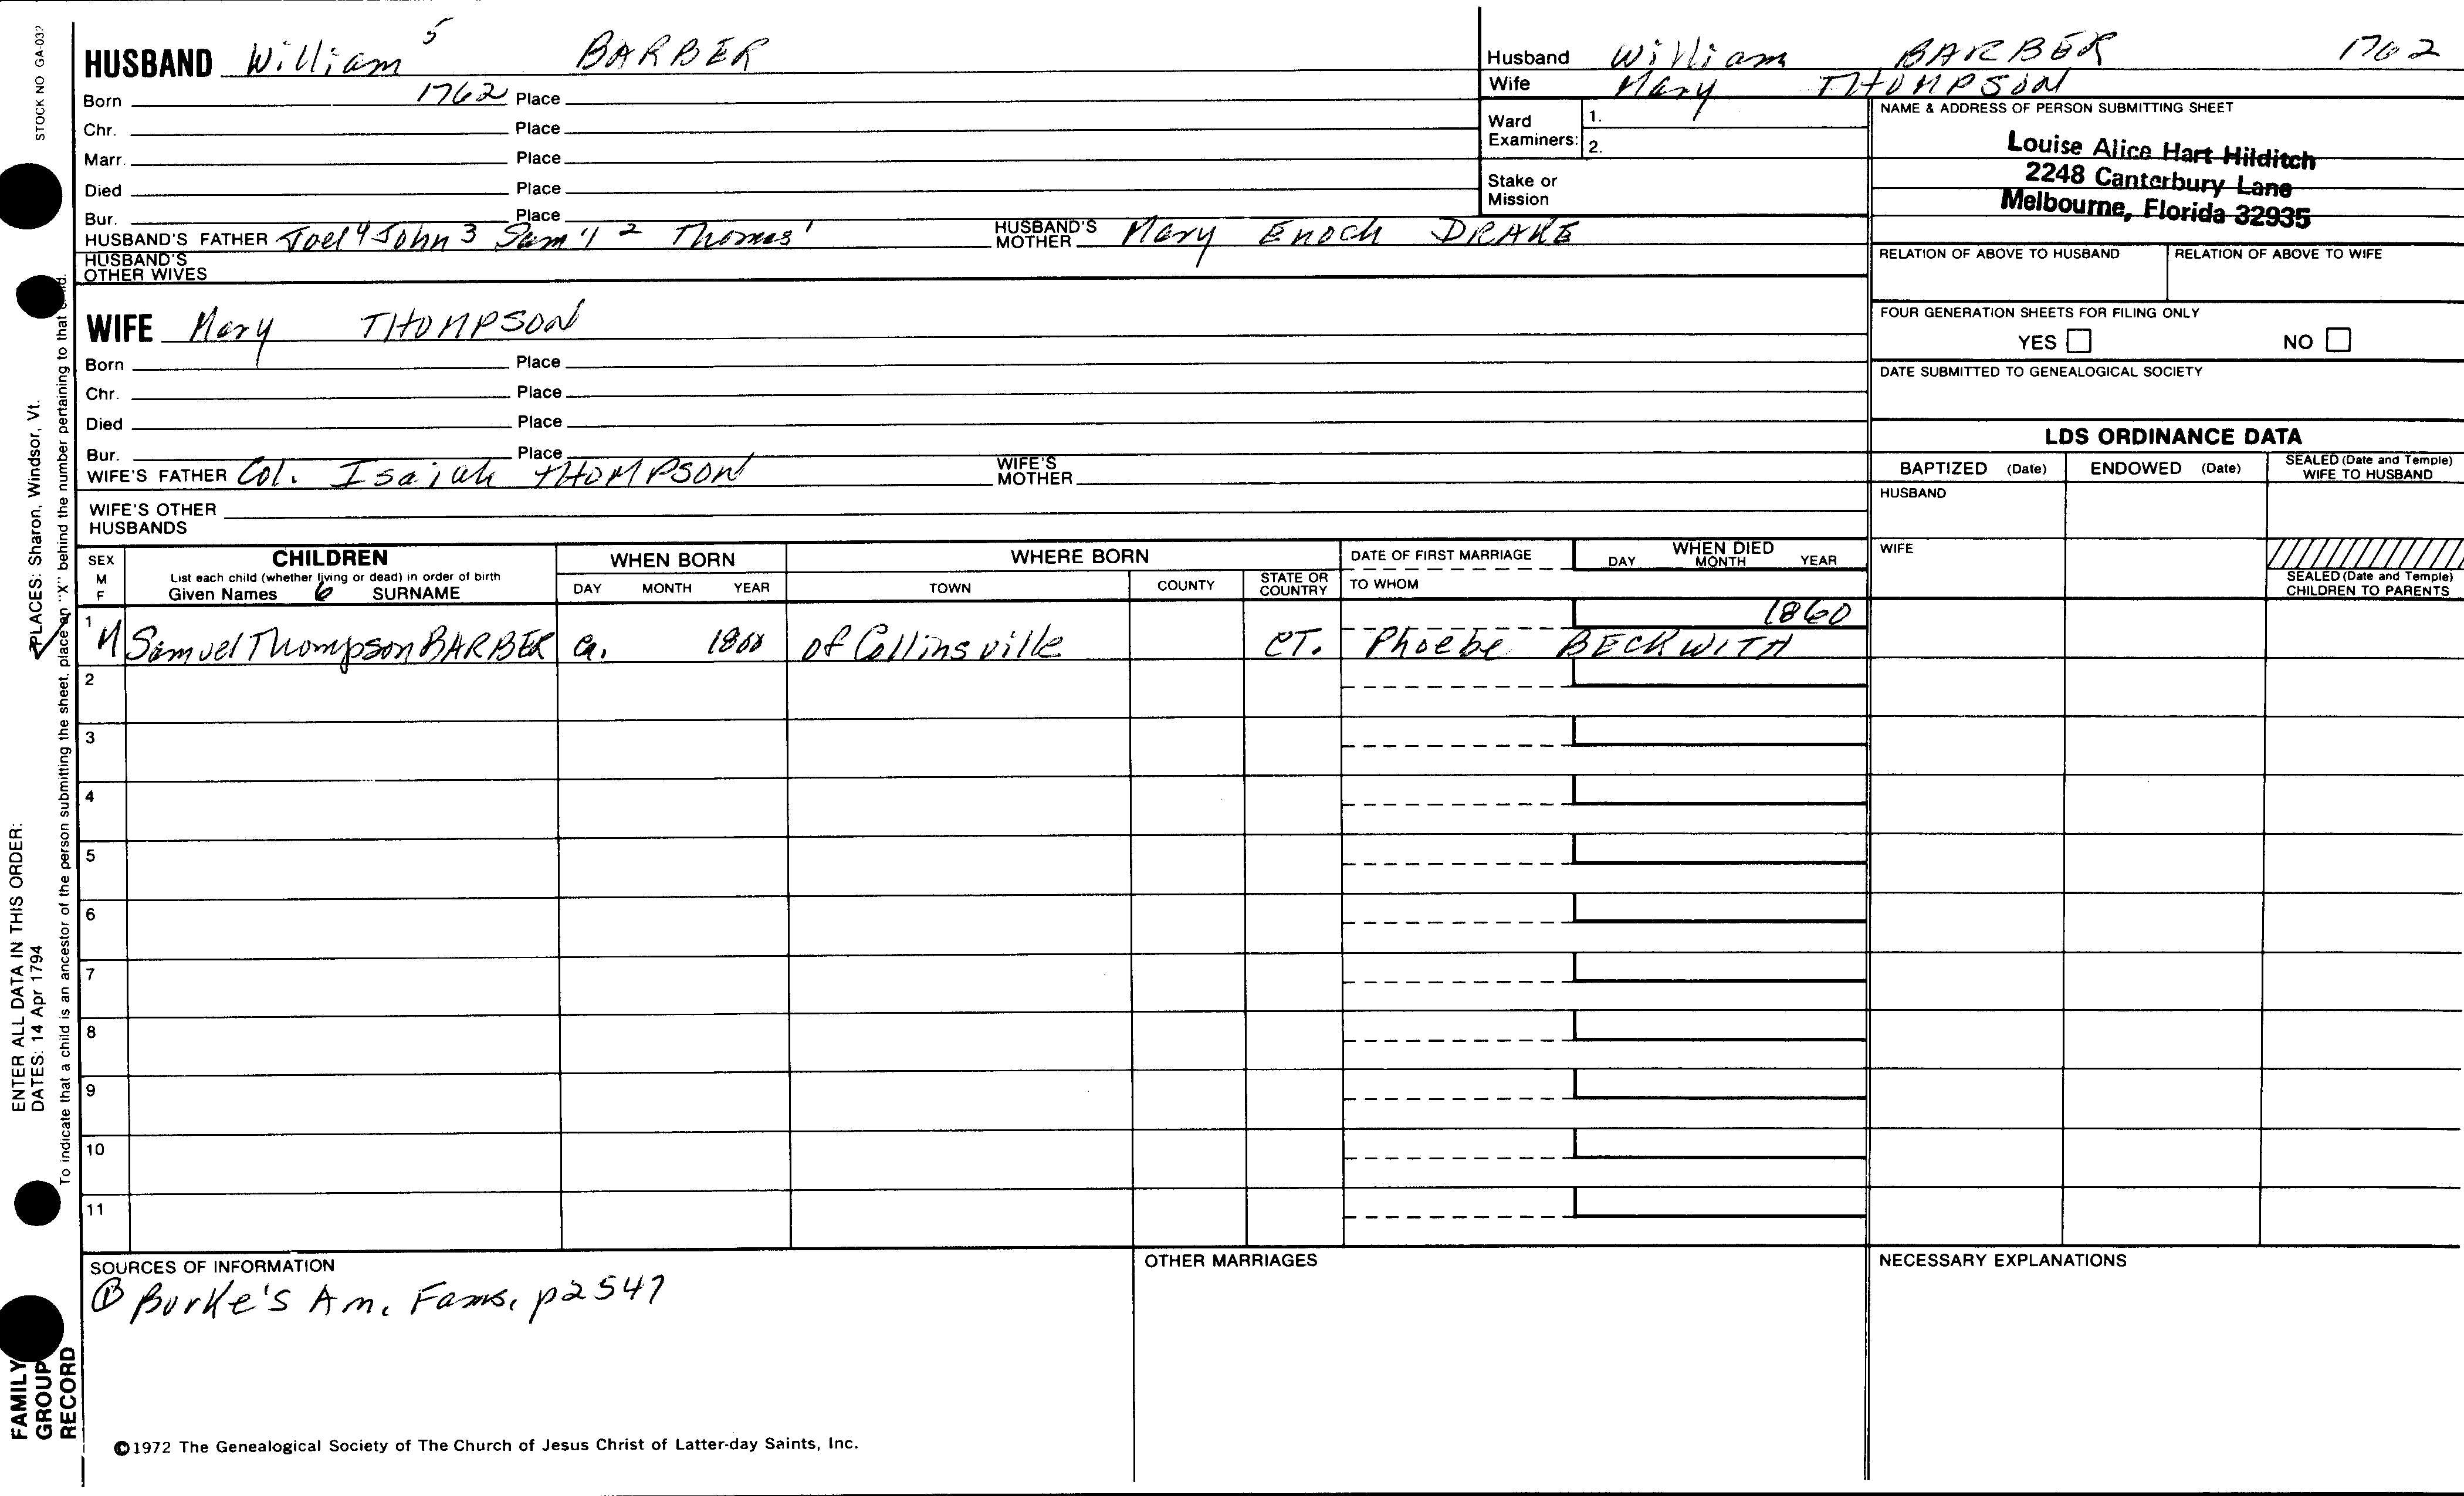 STOCK NO GA-03?
HUSBAND William 5 BARBER
Born 1762 Place
Chr. Place
Marr. Place
Died Place
Bur. Place
HUSBAND'S FATHER Joel 4 John 3 Sam'l 2 Thomas 1 HUSBAND'S MOTHER Mary Enoch DRAKE
HUSBAND'S OTHER WIVES
Husband William BARBER 1762
Wife Mary THOMPSON
Ward Examiners: 1.
2.
Stake or Mission
NAME & ADDRESS OF PERSON SUBMITTING SHEET
Louise Alice Hart Hilditch
2248 Canterbury Lane
Melbourne, Florida 32935
RELATION OF ABOVE TO HUSBAND RELATION OF ABOVE TO WIFE
FOUR GENERATION SHEETS FOR FILING ONLY
YES NO
DATE SUBMITTED TO GENEALOGICAL SOCIETY
WIFE Mary THOMPSON
Born Place
Chr. Place
Died Place
Bur. Place
WIFE'S FATHER Col. Isaiah THOMPSON WIFE'S MOTHER
WIFE'S OTHER HUSBANDS
LDS ORDINANCE DATA
BAPTIZED (Date) ENDOWED (Date) SEALED (Date and Temple) WIFE TO HUSBAND
HUSBAND
WIFE
SEALED (Date and Temple) CHILDREN TO PARENTS
SEX M F
CHILDREN
List each child (whether living or dead) in order of birth
Given Names 6 SURNAME
WHEN BORN
DAY MONTH YEAR
WHERE BORN
TOWN COUNTY STATE OR COUNTRY
DATE OF FIRST MARRIAGE
TO WHOM
WHEN DIED
DAY MONTH YEAR
1860
1 M Samuel Thompson BARBER ca. 1800 of Collinsville CT. Phoebe BECKWITH
2
3
4
5
6
7
8
9
10
11
SOURCES OF INFORMATION
① Burke's Am. Fams. p2547
OTHER MARRIAGES
NECESSARY EXPLANATIONS
©1972 The Genealogical Society of The Church of Jesus Christ of Latter-day Saints, Inc.
FAMILY
GROUP
RECORD
ENTER ALL DATA IN THIS ORDER:
DATES: 14 Apr 1794 PLACES: Sharon, Windsor, Vt.
To indicate that a child is an ancestor of the person submitting the sheet, place an "X" behind the number pertaining to that child.